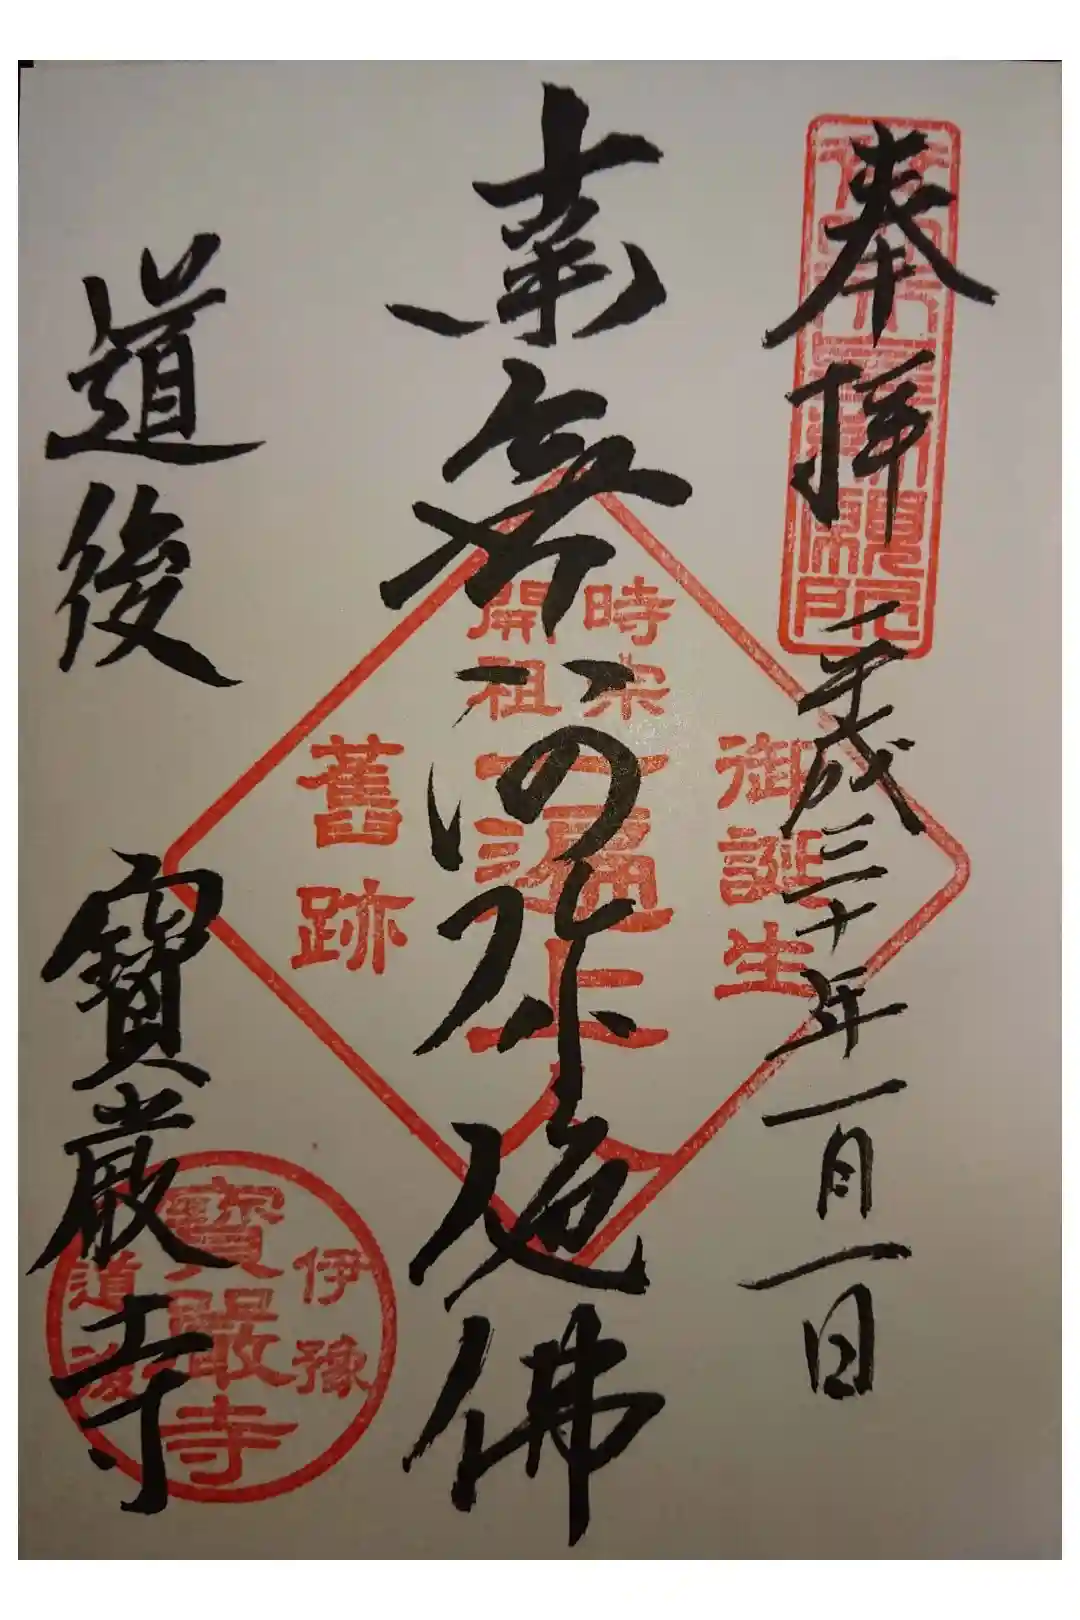 奉拝
平成三十年一月一日
南無阿弥陀佛
道後 寶厳寺
御誕生
時宗
開祖
一遍上人
舊跡
伊豫
寶嚴寺
道後